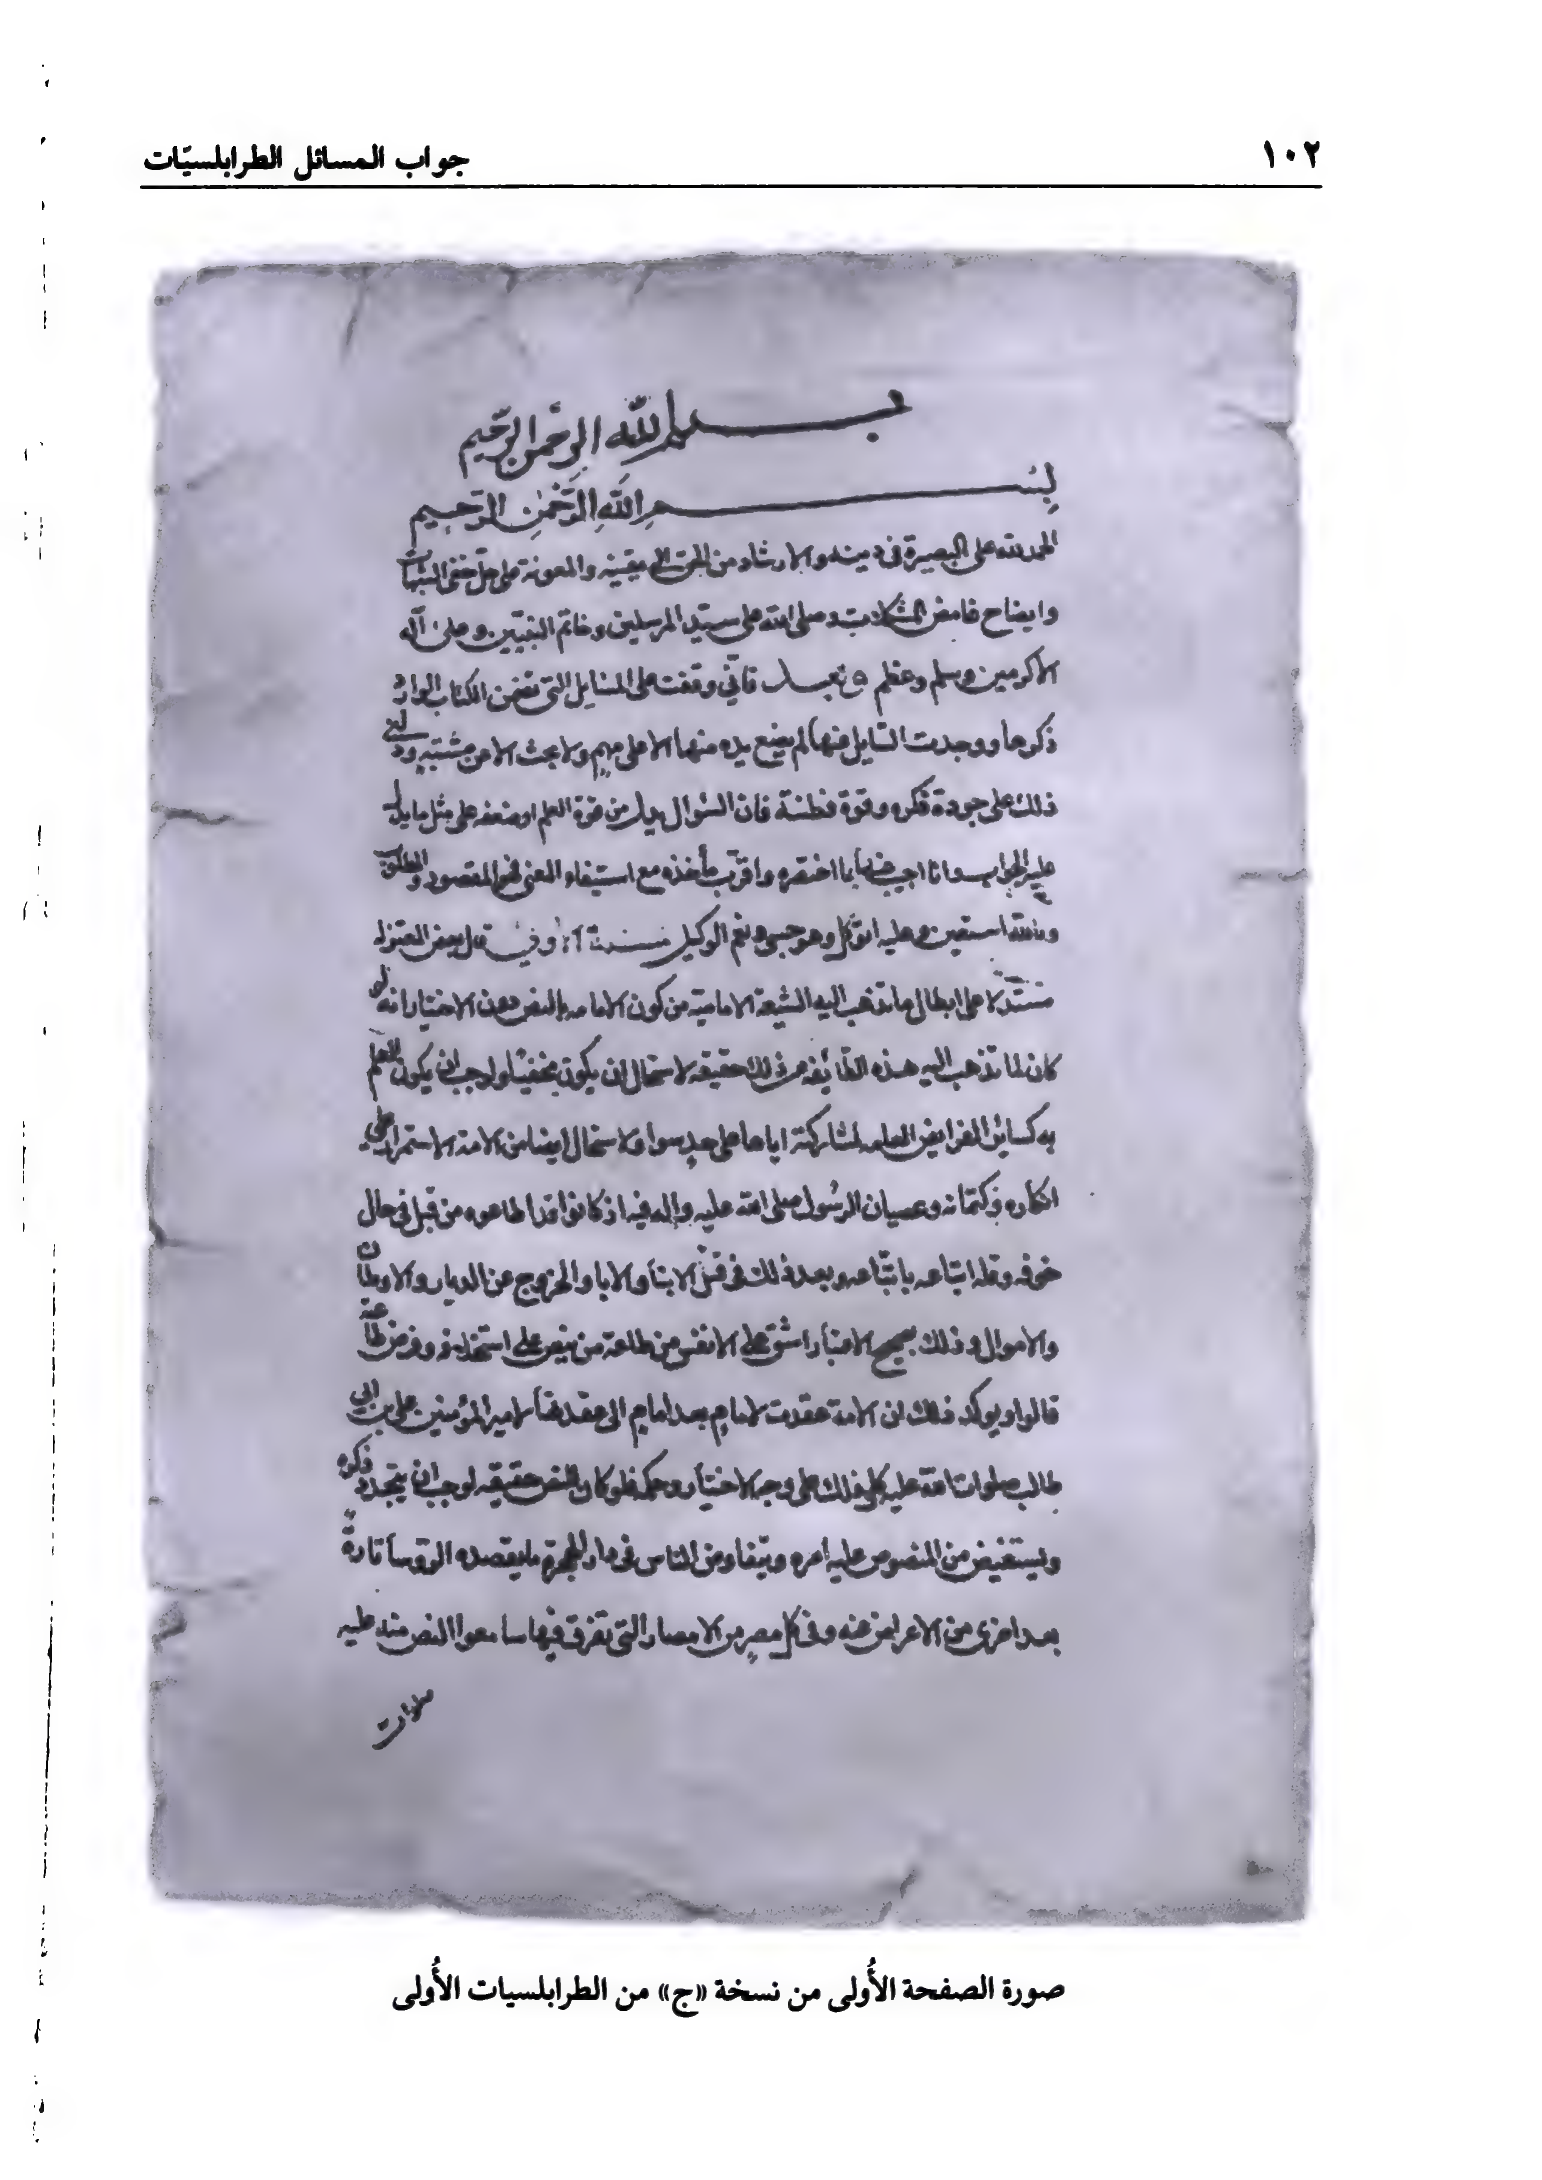 ١٠٢
جواب المسائل الطرابلسيّات
بسم الله الرحمن الرحيم
بِسْمِ اللهِ الرَّحْمٰنِ الرَّحيمِ
الحمد لله على البصيرة في دينه والارشاد من الحق الى يقينه والمعونة على حل خفى الشبهات
وايضاح غامض المشكلات وصلى الله على سيّد المرسلين وخاتم النبيّين وعلى آله
الاكرمين وسلم وعظم بعد فانّي وقفت على المسايل التى تضمن الكتاب الوارد
ذكرها ووجدت السّايل عنها لم يضع يده منها الا على مهم ولا بحث الا عن مشتبه ودلّنى
ذلك على جودة فكره وقوة فطنة فان السّوال يدل من قوة العلم او ضعفه على مثل ما يدل
عليه الجواب وانا اجيب عنها بما اختصره واقرّب مأخذه مع استيفاء المعنى فهو المقصود والمطلوب
وبالله استعين وعليه اتوكل وهو حسبى ونعم الوكيل مسئلة اولى قال بعض المعتزله
مستدلا على ابطال ما تذهب اليه الشيعة الامامية من كون الامامه بالنص دون الاختيار انه لو
كان لما تذهب اليه هذه الطّايفه من ذلك حقيقه لاستحال ان يكون مخفيّا ولوجب ان يكون العلم
به كسائر الفرايض العلمه لمشاركته اياها على حدٍ سوا ولاستحال ايضا من الامة الاستمرار على
انكاره وكتمانه وعصيان الرسول صلى الله عليه واله فيه اذ كانوا قد اطاعوه من قبل فى حال
خوفه وقله اتباعه باتّباعه وبعد ذلك فى قتل الابنآ والابا والخروج عن الديار والاوطان
والاموال وذلك بصحيح الاعتبار اشق على الانفس من طاعة من نص على استخلافه وفرض طاعته
قالوا ويوكد ذلك ان الامة عقدت لامامٍ بعد امامٍ الى عقدها لامير المؤمنين على بن ابى
طالب صلوات الله عليه كل ذلك على وجه الاختيار وحكمه فلو كان للنص حقيقه لوجب ان يتجدد ذكره
ويستفيض من المنصوص عليه امره ويتفاوض الناس فى دار الهجرة ما يقصده الروسآ تارة
بعد اخرى من الاعراض عنه وفى كل مصرٍ من الامصار التى تفرق فيها سامعوا النص منه عليه
صلوات
صورة الصفحة الأُولى من نسخة «ج» من الطرابلسيات الأُولى